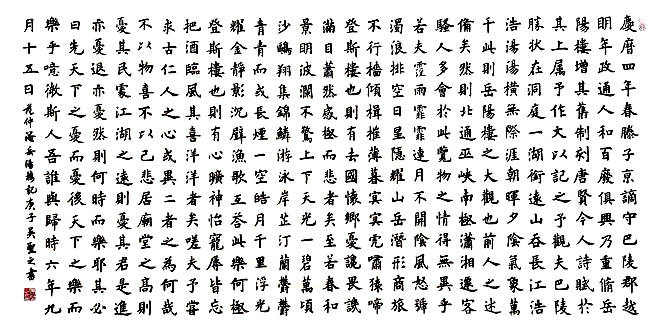 慶曆四年春滕子京謫守巴陵郡越
明年政通人和百廢俱興乃重脩岳
陽樓增其舊制刻唐賢今人詩賦於
其上屬予作文以記之予觀夫巴陵
勝狀在洞庭一湖銜遠山吞長江浩
浩湯湯橫無際涯朝暉夕陰氣象萬
千此則岳陽樓之大觀也前人之述
備矣然則北通巫峽南極瀟湘遷客
騷人多會於此覽物之情得無異乎
若夫霪雨霏霏連月不開陰風怒號
濁浪排空日星隱耀山岳潛形商旅
不行檣傾楫摧薄暮冥冥虎嘯猿啼
登斯樓也則有去國懷鄉憂讒畏譏
滿目蕭然感極而悲者矣至若春和
景明波瀾不驚上下天光一碧萬頃
沙鷗翔集錦鱗游泳岸芷汀蘭鬱鬱
青青而或長煙一空皓月千里浮光
耀金靜影沉璧漁歌互答此樂何極
登斯樓也則有心曠神怡寵辱皆忘
把酒臨風其喜洋洋者矣嗟夫予嘗
求古仁人之心或異二者之為何哉
不以物喜不以己悲居廟堂之高則
憂其民處江湖之遠則憂其君是進
亦憂退亦憂然則何時而樂耶其必
曰先天下之憂而憂後天下之樂而
樂乎噫微斯人吾誰與歸時六年九
月十五日范仲淹岳陽樓記庚子吳聖之書